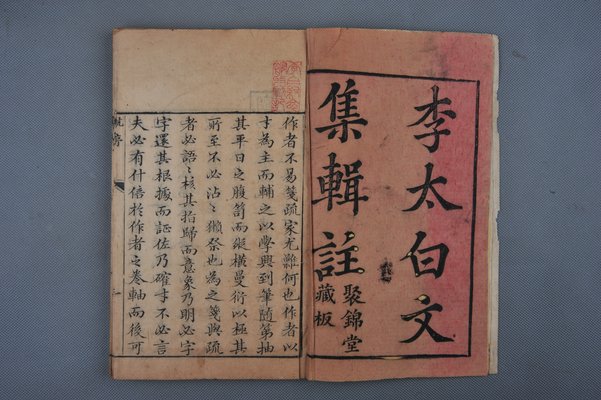 李太白文
集輯註
聚錦堂
藏板
作者不易箋疏家尤難何也作者以
才為主而輔之以學興到筆隨第抽
其平日之腹笥而縱橫曼衍以極其
所至不必沾沾獺祭也為之箋與疏
者必語語核其指歸而意象乃明必字
字還其根據而証佐乃確才不必言
夫必有什倍於作者之卷軸而後可